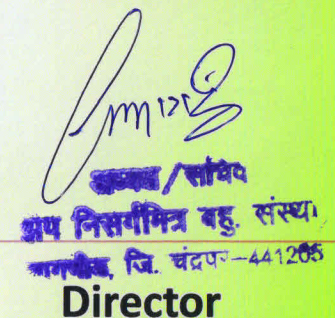 अध्यक्ष / सचिव
निसर्गमित्र बहु. संस्था
जि. चंद्रपूर-441205
Director